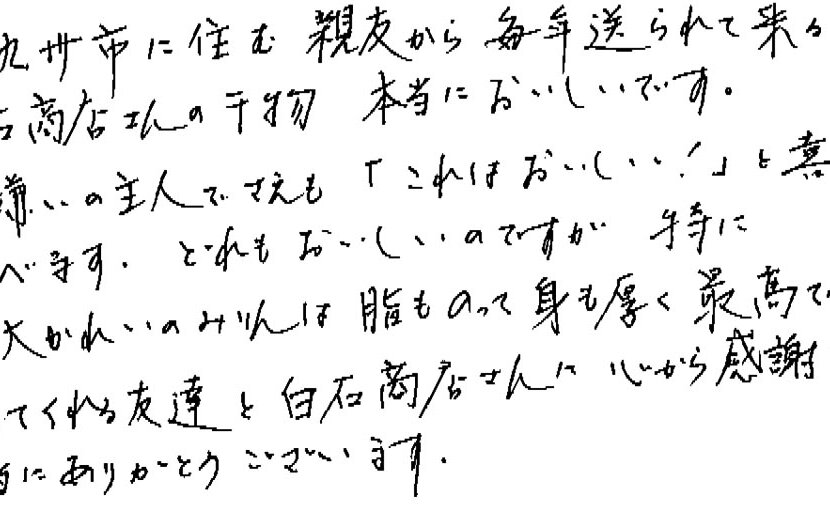 九州市に住む 親友から 毎年送られて来る
石商店さんの干物 本当においしいです。
嫌いの主人でさえも「これはおいしい！」と喜
べます。どれもおいしいのですが 特に
大かれいのみりんは 脂ものって身も厚く最高で
てくれる友達と白石商店さんに 心から感謝
当にありがとうございます.